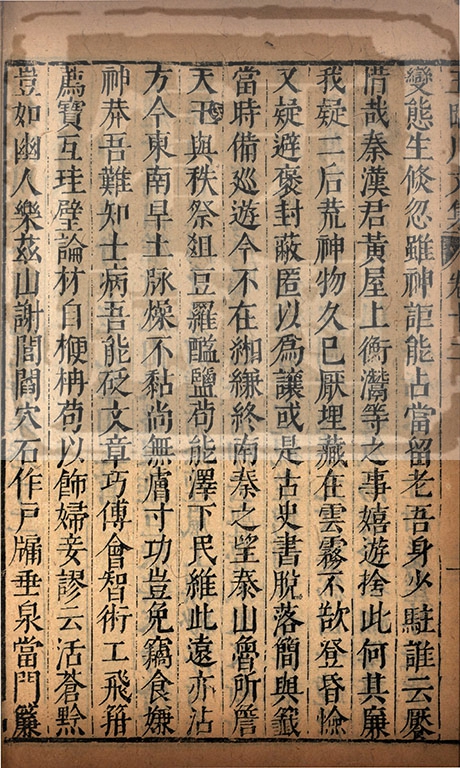 王臨川文集 卷十二
變態生倏忽雖神詎能占當留老吾身少駐誰云饜
惜哉秦漢君黃屋上衡灊等之事嬉遊捨此何其廉
我疑二后荒神物久巳厭埋藏在雲霧不欲登昏憸
又疑避褒封蔽匿以爲讓或是古史書脱落簡與籤
當時備巡遊今不在緗縑終南秦之望泰山魯所詹
天王與秩祭俎豆羅醯鹽尙能澤下民維此遠亦沾
方今東南旱土脉燥不黏尚無膚寸功豈免竊食嫌
神莽吾難知士病吾能砭文章巧傅會智術工飛箝
薦寶互珪璧論材自梗柟苟以飾婦妾謬云活蒼黔
豈如幽人樂茲山謝閭閻穴石作戸牖垂泉當門簾